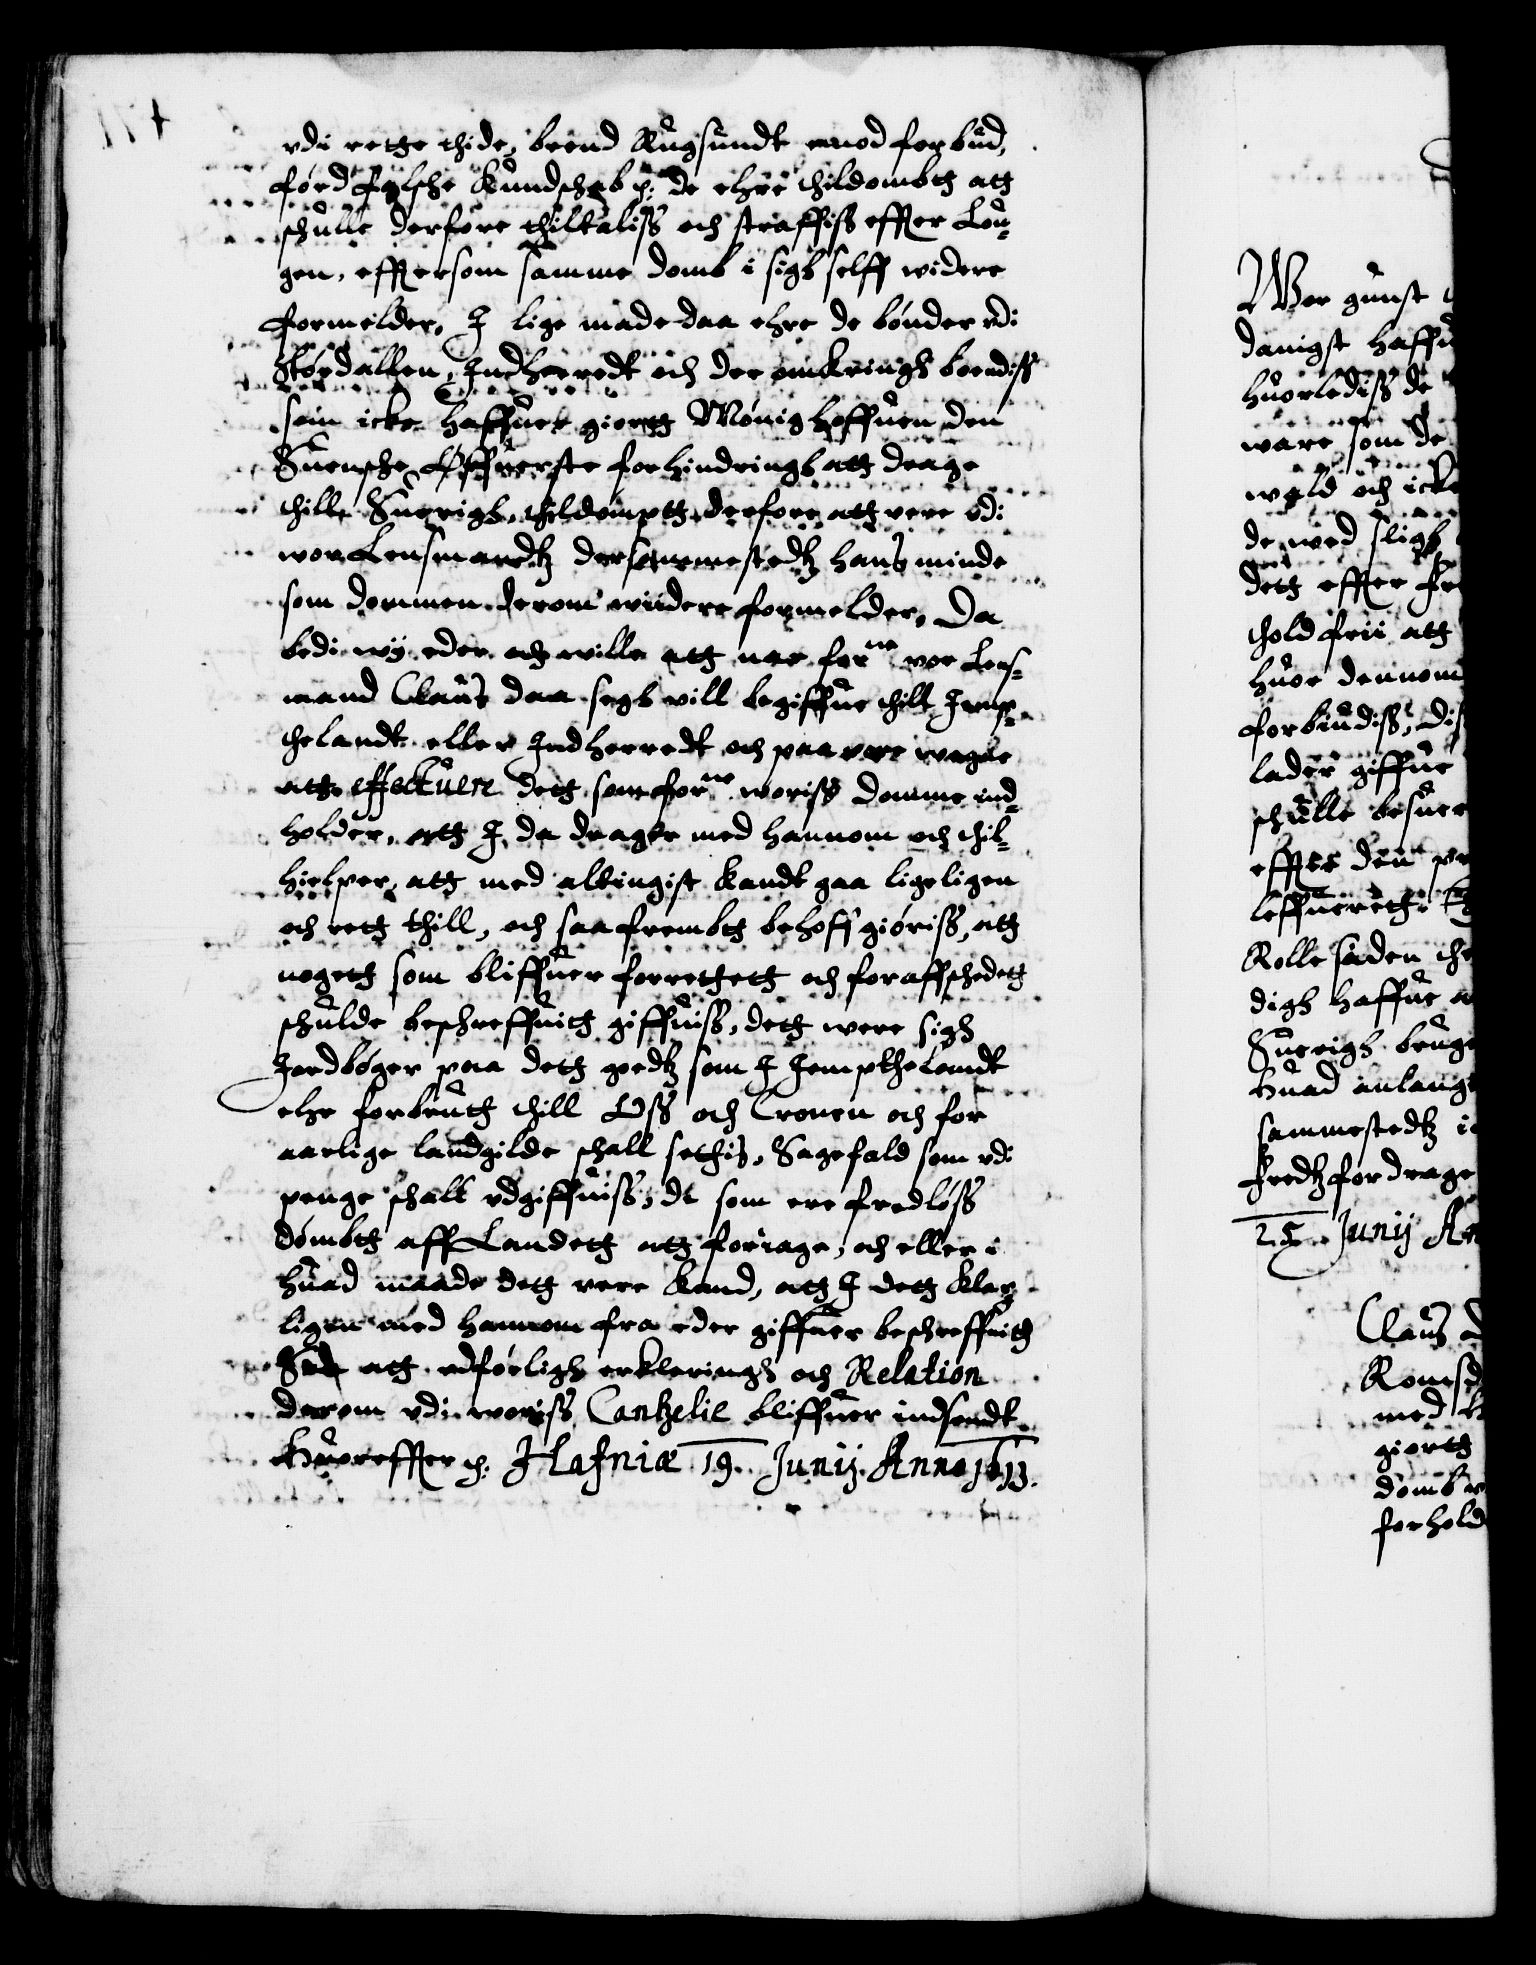 vdi rette thide, brend Rugsundt emod forbud,
førd falsche kundschab p: de ehre thildømbtt att
schulle derfore thiltaliss och straffiss effter Lou-
gen, effttersom samme domb i sigh selff widere
formelder, I lige made daa ehre de bønder vdi
Størdallen, Indherredt och der omkringh boendiss
som icke haffuer giortt Mønighoffuen den
Suensche Øffuerste forhindringh att drage
thill Suerigh, thildømptt derfore att vere vdi
wor Lensmandtz dersammestedtz hans minde
som dommen derom widere formelder, Da
bedi wij eder och wille att naar forne vor Lens-
mand Claus daa segh vill begiffue thill Jemp-
thelandt eller Indherredt och paa vore wegne
att effectuere dett som forne woriss domme ind-
holder, att I da drager med hannom och thil-
hielper, att med altingist kandt gaa ligeligen
och rett thill, och saa frembtt behoff giøriss, att
nogett som bliffuer forrettett och foraffschedett
schulde beschreffuitt giffuiss, dett were sigh
Jordbøger paa dett godtz som I Jempthelandt
ehr forbrutt thill Oss och Cronen och for
aarlige landgilde schall settis, Sagefald som vdi
penge schall vdgiffuiss, de som ere fredløss
dømbtt aff Landett att foriage, och eller i
huad maade dett vere kand, att I dett klar-
ligen med hannom fra eder giffuer beschreffuitt
Saa att vdførligh erkleringh och Relation
derom vdi woriss Cantzelie bliffuer indsendt
Huoreffter p: Hafniæ 19. Junij Anno 1613.
Wor gunst
danigst haffu
huorlediss de
ware som de
wold och icke
de med sligh
dett effter fr
thold frii att
huor dennom
forbiudiss, Di
lader giffue
schulle besuer
effter den
leffuerett
Rolle siden
digh haffue
Suerigh bruge
huad anlang
sammestedtz i
fredtz fordrage
25. Junij An
Claus
Romsd
med
giortt
domb
forhold